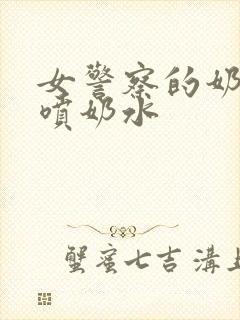 女警察的奶
喷奶水
蟹蜜七吉 溝上